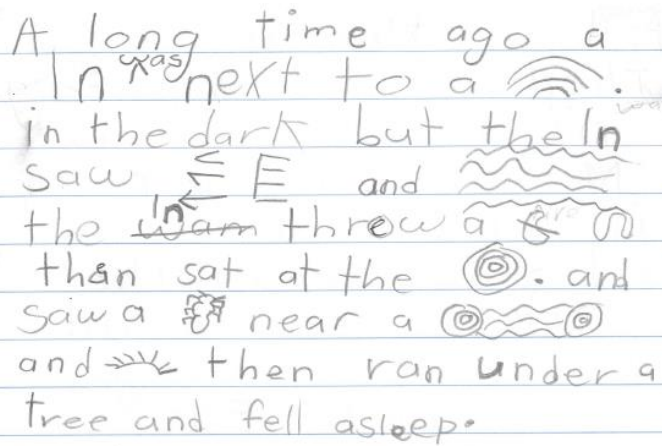 A long time ago a
was next to a .
in the dark but the
saw and
the wam threw a
than sat at the . and
saw a near a
and then ran under a
tree and fell asleep.